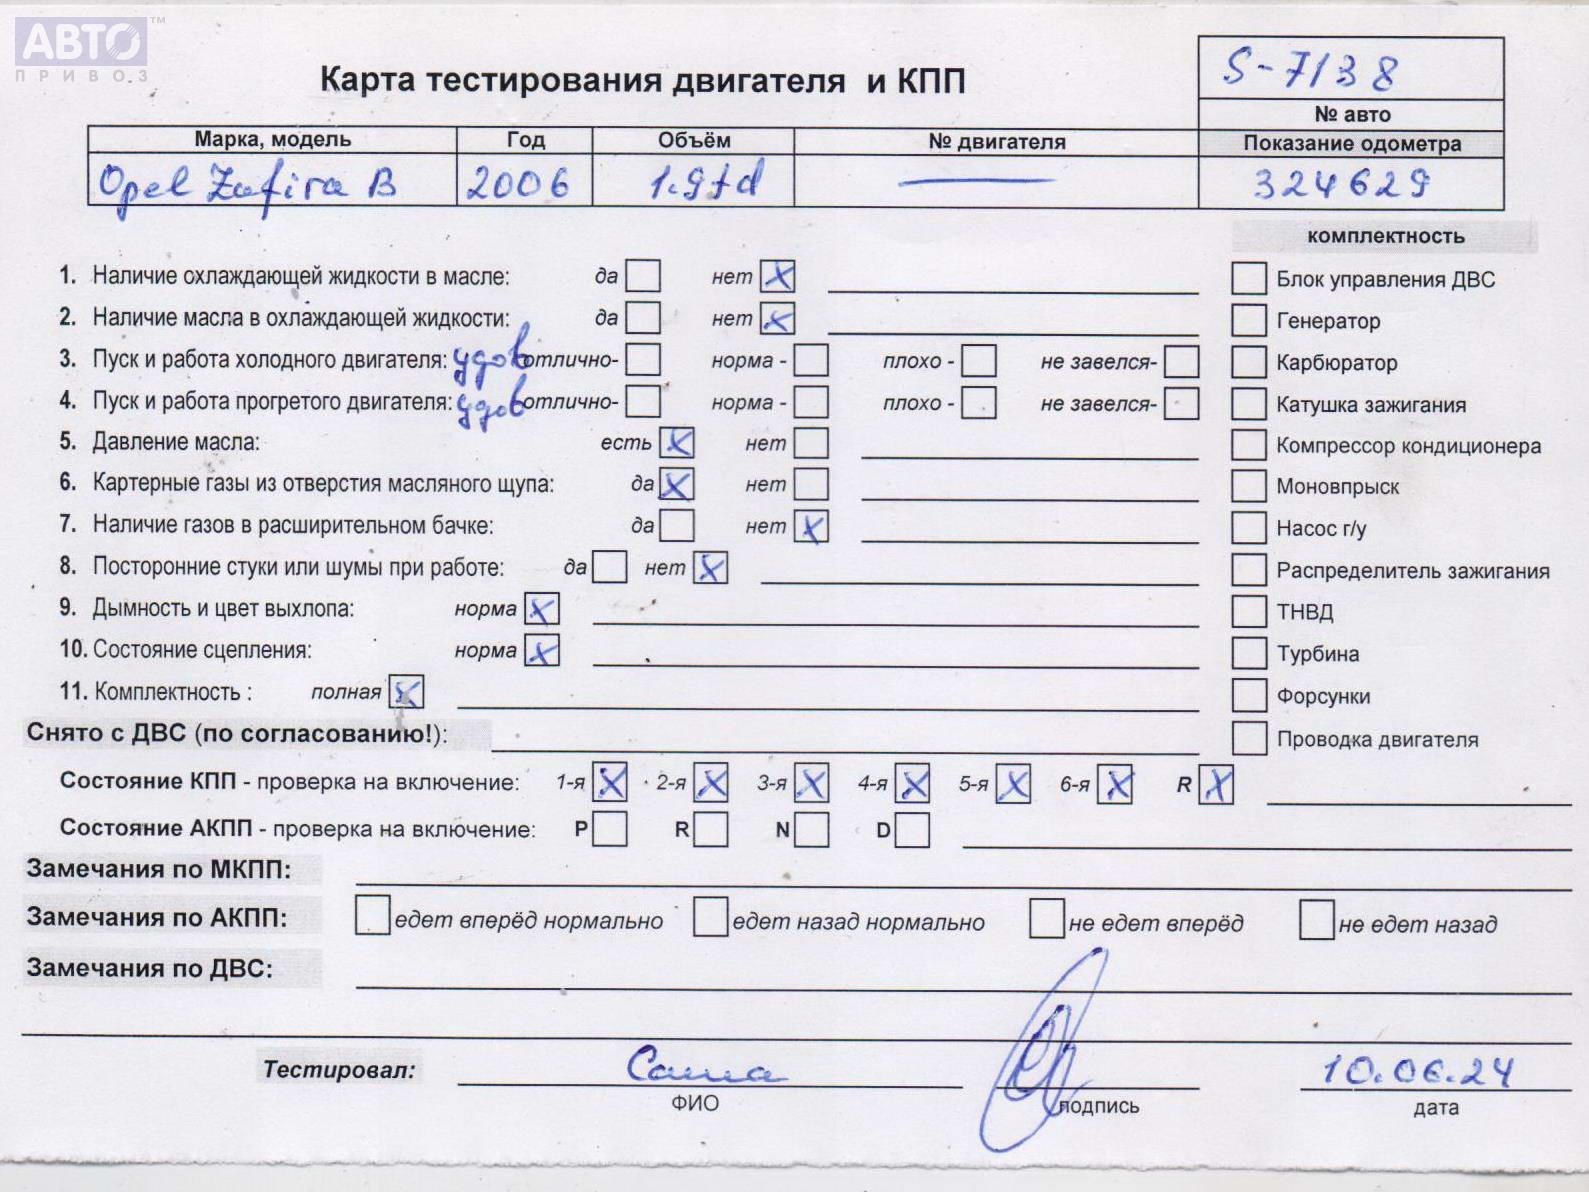 АВТО ™
ПРИВОЗ
Карта тестирования двигателя и КПП
S-7138
№ авто
Марка, модель Год Объём № двигателя Показание одометра
Opel Zafira B 2006 1.9td — 324629
комплектность
1. Наличие охлаждающей жидкости в масле: да нет X Блок управления ДВС
2. Наличие масла в охлаждающей жидкости: да нет X Генератор
3. Пуск и работа холодного двигателя: удов отлично- норма - плохо - не завелся- Карбюратор
4. Пуск и работа прогретого двигателя: удов отлично- норма - плохо - не завелся- Катушка зажигания
5. Давление масла: есть X нет Компрессор кондиционера
6. Картерные газы из отверстия масляного щупа: да X нет Моновпрыск
7. Наличие газов в расширительном бачке: да нет X Насос г/у
8. Посторонние стуки или шумы при работе: да нет X Распределитель зажигания
9. Дымность и цвет выхлопа: норма X ТНВД
10. Состояние сцепления: норма X Турбина
11. Комплектность : полная X Форсунки
Снято с ДВС (по согласованию!): Проводка двигателя
Состояние КПП - проверка на включение: 1-я X 2-я X 3-я X 4-я X 5-я X 6-я X R X
Состояние АКПП - проверка на включение: P R N D
Замечания по МКПП:
Замечания по АКПП: едет вперёд нормально едет назад нормально не едет вперёд не едет назад
Замечания по ДВС:
Тестировал: Саша 10.06.24
ФИО подпись дата